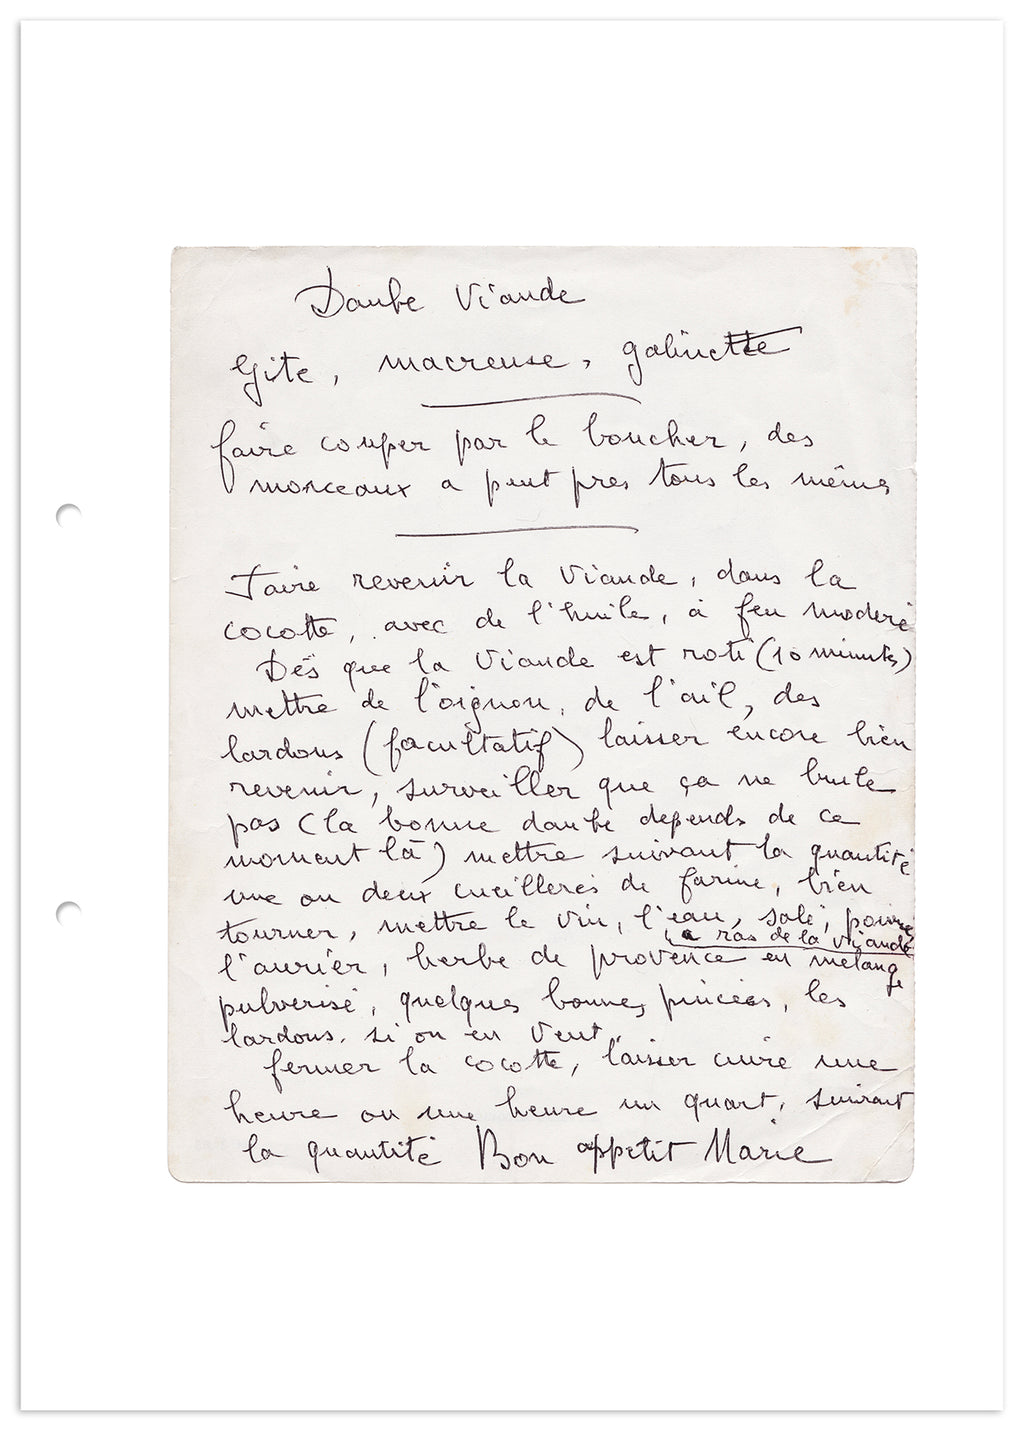 Daube Viande
Gite, macreuse, galinette
faire couper par le boucher, des
morceaux a peut pres tous les mêmes
Faire revenir la Viande, dans la
cocotte, avec de l'huile, à feu moderé
Dès que la Viande est roti (10 minutes)
mettre de l'oignon, de l'ail, des
lardons (facultatif) laisser encore bien
revenir, surveiller que ça ne brule
pas (la bonne daube depends de ce
moment là) mettre suivant la quantité
une ou deux cueillerés de farine, bien
tourner, mettre le vin, l'eau, salé, poivré
a ras de la Viande
l'aurier, herbe de provence en melange
pulverisé, quelques bonnes pincées, les
lardons. si on en Veut.
fermer la cocotte, laisser cuire une
heure ou une heure un quart, suivant
la quantité Bon appetit Marie